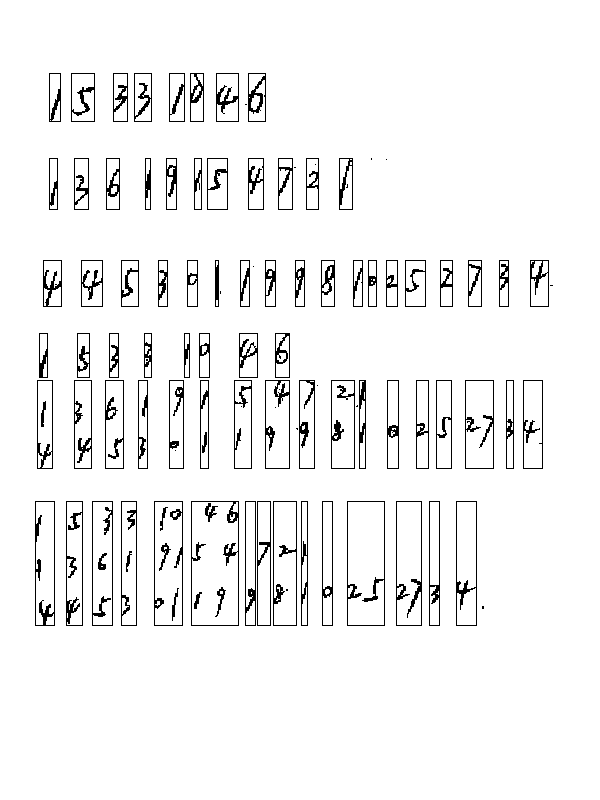 1 5 3 3 1 0 4 6
1 3 6 1 9 1 5 4 7 2 1
4 4 5 3 0 1 1 9 9 8 1 0 2 5 2 7 3 4
1 5 3 3 1 0 4 6
1 3 6 1 9 1 5 4 7 2 1
4 4 5 3 0 1 1 9 9 8 1 0 2 5 2 7 3 4
1 5 3 3 1 0 4 6
1 3 6 1 9 1 5 4 7 2 1
4 4 5 3 0 1 1 9 9 8 1 0 2 5 2 7 3 4